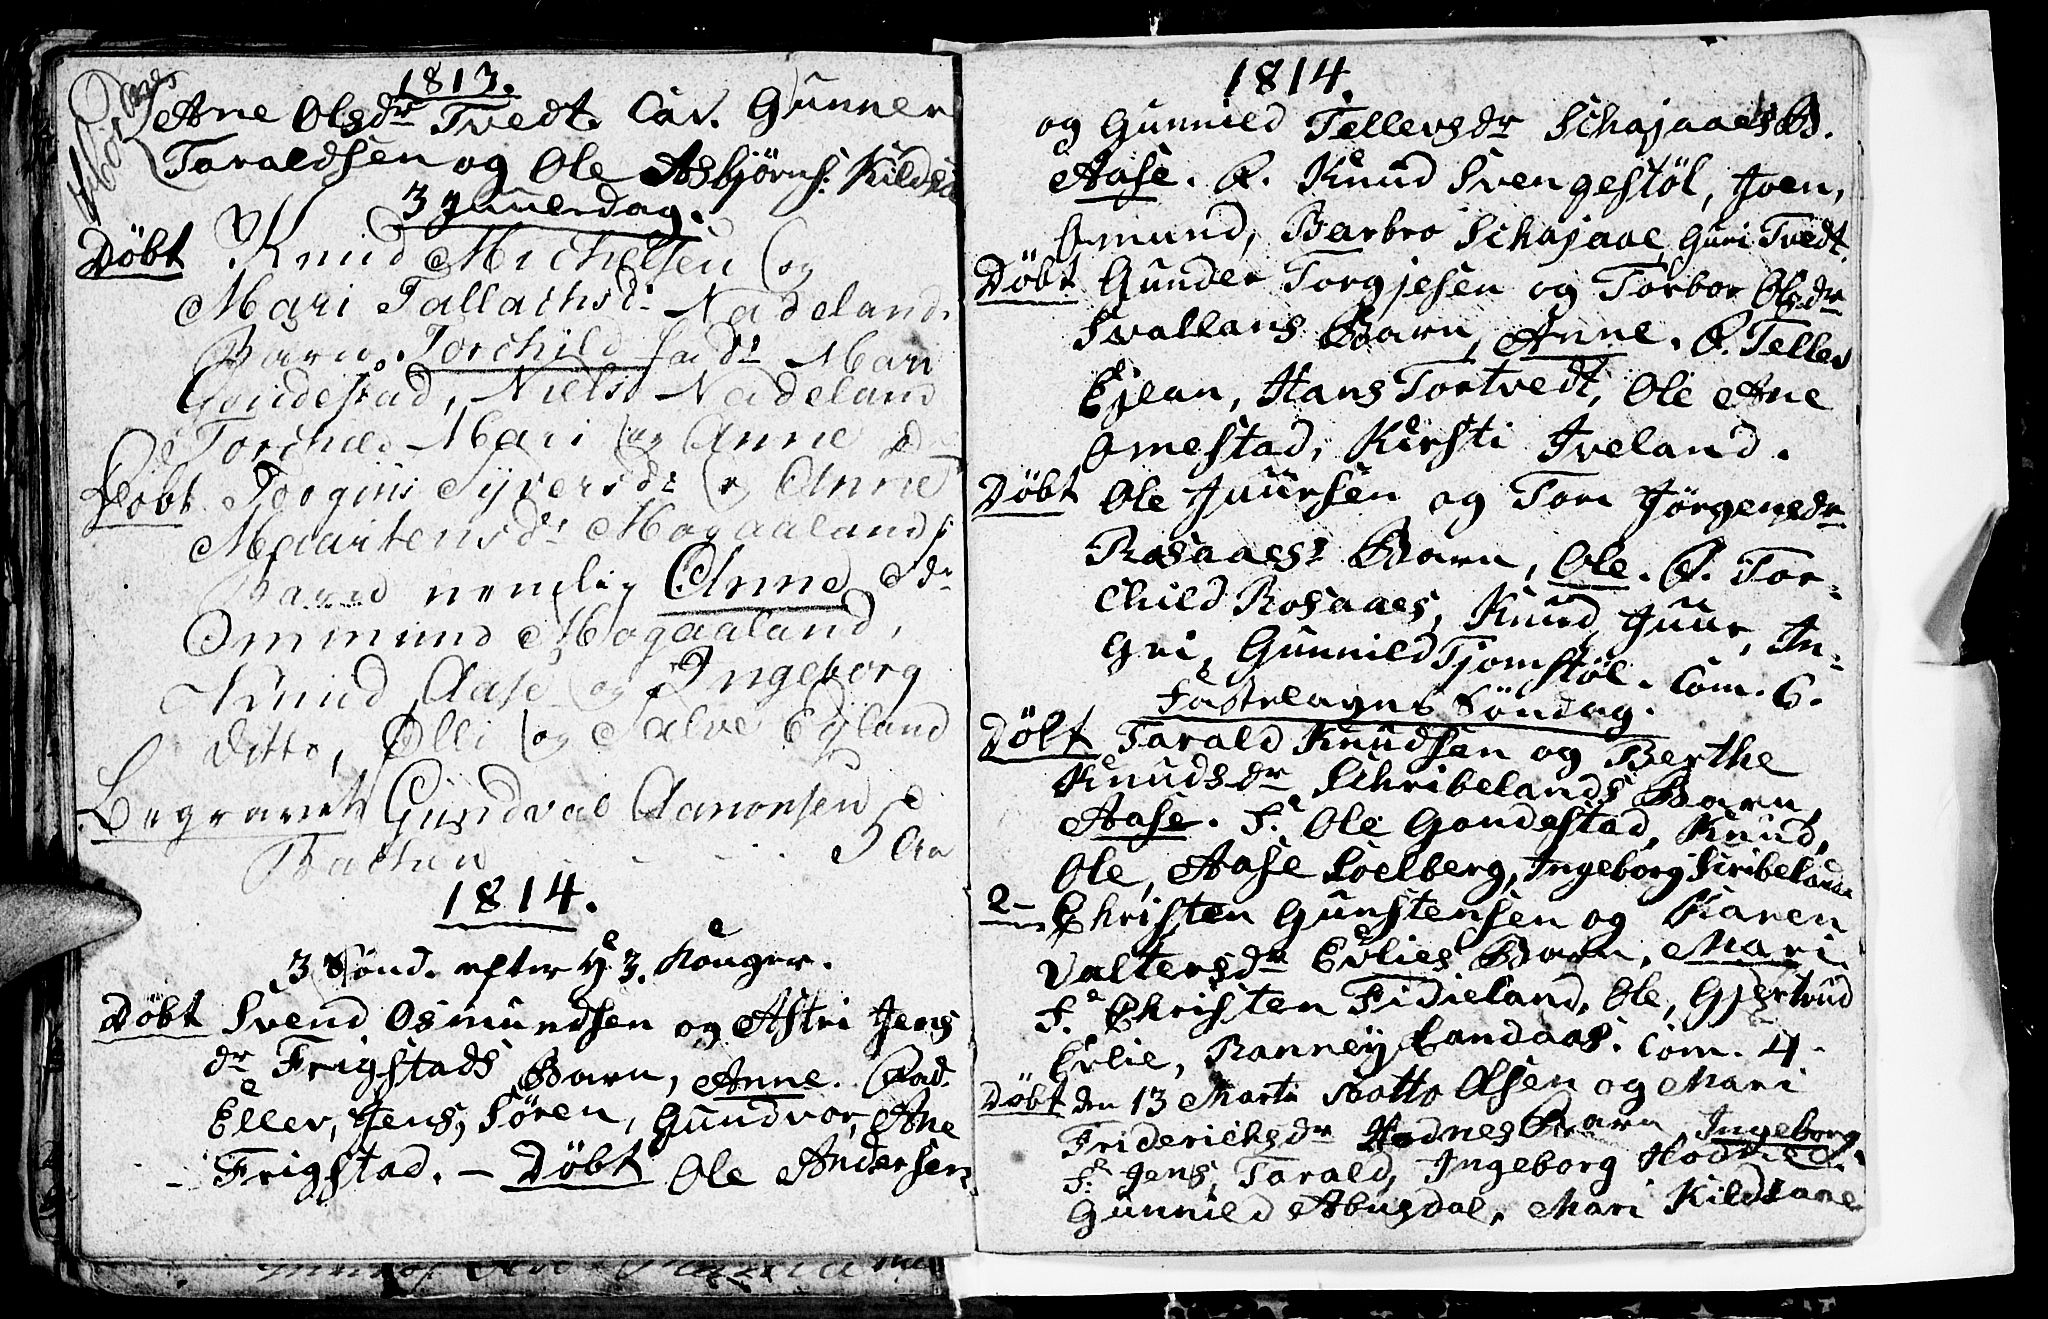 1813.
Ane Olsdr Tvedt. Cav. Gunner
Taraldsen og Ole Asbjørns. Kildsa
3 Juuledag.
Döbt Knud Michelsen og
Mari Tallachsdr Nadeland.
Barn. Torchild fadr Mari
Goudestad, Niels Nadeland
Torchild Mari og Anne d
Döbt Jorgüs Syversdr og Anne
Maartensdr Mogaalands
Barn nemlig Anne Fdr
Ommund Mogaaland,
Knud Aase og Ingeborg
ditto, Olli og Salve Egland
Begravet Gundval Aanonsen
Backen 5 Aar
1814.
3 Sönd. efter H 3. Konger.
Döbt Svend Osmundsen og Astri Jens
dr Frigstads Barn, Anne. Fad.
Eller, Jens, Sören, Gundvor, Ane
Frigstad. – Döbt Ole Andersen
1814.
og Gunnild Tellevsdr Schajaaes B.
Aase. F. Knud Svengestöl, Joen,
Omund, Barbro Schajaae, Guri Tvedt.
Döbt Gunder Torgjesen og Torbor Olsdr
Svallans Barn, Anne. F. Tellev
Ejean, Hans Tortvedt, Ole Ane
Omestad, Kirsti Iveland.
Döbt Ole Juursen og Tore Jörgensdr
Rosaaes Barn, Ole. F. Tor-
child Rosaaes, Knud Juur, In-
gri, Gunnild Tjomstöl. Com. 6.
Fastelagns Söndag.
Döbt Tarald Knudsen og Berthe
Knudsdr Schribelands Barn,
Aase. F. Ole Gondestad, Knud,
Ole, Aase Loelberg, Ingeborg Skribeland
2 – Christen Gunstensen og Karen
Valtersdr Erlies Barn, Mari.
F. Christen Fidieland, Ole, Gjertrud
Erlie, Ranney Landaas. Com. 4.
Döbt den 13 Marti Aatto Olsen og Mari
Friderichsdr Hodnes Barn Ingeborg.
F. Jens, Tarald, Ingeborg Hodne
Gunnild Abusdal, Mari Kildsane